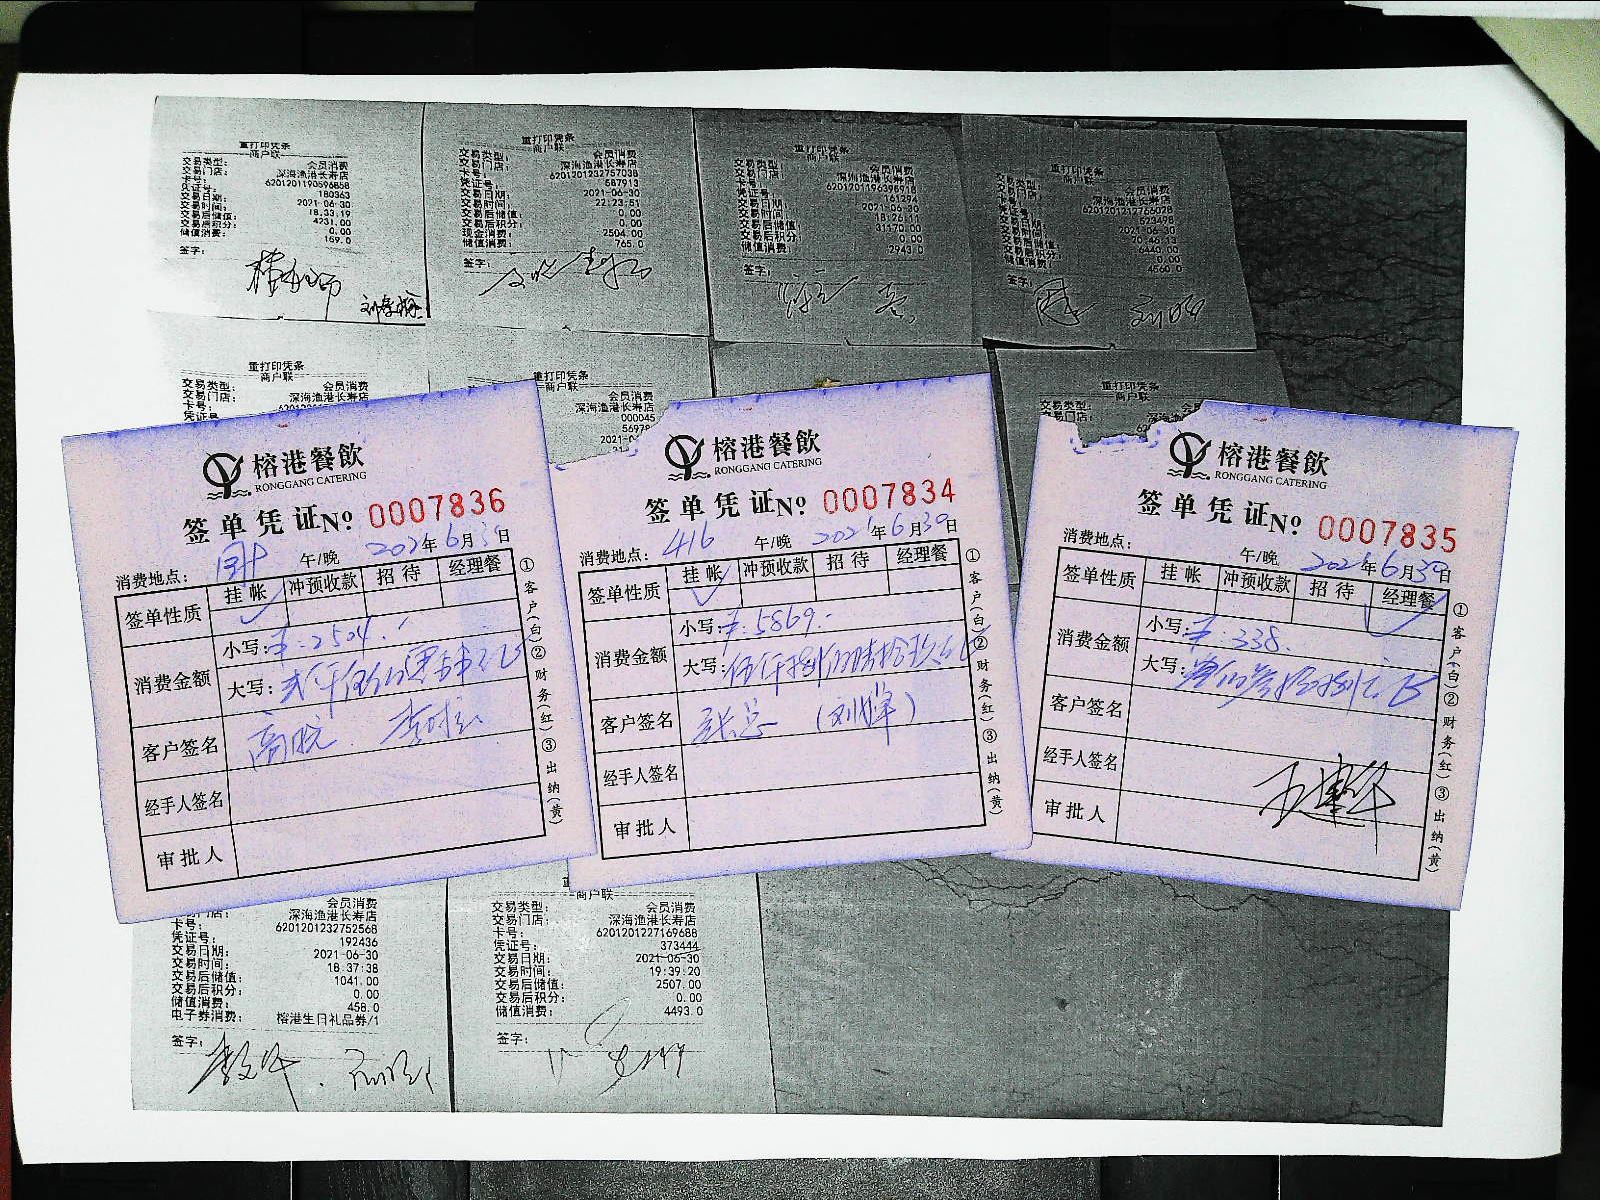 重打印凭条
商户联
交易类型： 会员消费
交易门店： 深海渔港长寿店
卡号： 6201201190596858
凭证号： 180363
交易日期： 2021-06-30
交易时间： 18:33:19
交易后储值： 4231.00
交易后积分： 0.00
储值消费： 159.0
签字：
重打印凭条
商户联
交易类型： 会员消费
交易门店： 深海渔港长寿店
卡号： 6201201232757038
凭证号： 587913
交易日期： 2021-06-30
交易时间： 22:23:51
交易后储值： 0.00
交易后积分： 0.00
现金消费： 2504.00
储值消费： 765.0
签字：
重打印凭条
商户联
交易类型： 会员消费
交易门店： 深海渔港长寿店
卡号： 6201201196396918
凭证号： 161294
交易日期： 2021-06-30
交易时间： 18:26:11
交易后储值： 31170.00
交易后积分： 0.00
储值消费： 2943.0
签字：
重打印凭条
商户联
交易类型： 会员消费
交易门店： 深海渔港长寿店
卡号： 6201201212766028
凭证号： 523498
交易日期： 2021-06-30
交易时间： 20:46:13
交易后储值： 6440.00
交易后积分： 0.00
储值消费： 4560.0
签字：
重打印凭条
商户联
交易类型： 会员消费
交易门店： 深海渔港长寿店
卡号：
重打印凭条
商户联
会员消费
深海渔港长寿店
000045
重打印凭条
商户联
交易类型：
榕港餐飲
RONGGANG CATERING
签单凭证№ 0007836
消费地点： 午/晚 2021年6月30日
签单性质 挂帐 冲预收款 招待 经理餐
消费金额 小写：¥:2504.-
大写：贰仟伍佰零肆元正
客户签名
经手人签名
审批人
①客户(白)②财务(红)③出纳(黄)
榕港餐飲
RONGGANG CATERING
签单凭证№ 0007834
消费地点：416 午/晚 2021年6月30日
签单性质 挂帐 冲预收款 招待 经理餐
消费金额 小写：¥:5869.-
大写：伍仟捌佰陆拾玖元正
客户签名 张总 (刘峰)
经手人签名
审批人
①客户(白)②财务(红)③出纳(黄)
榕港餐飲
RONGGANG CATERING
签单凭证№ 0007835
消费地点： 午/晚 2021年6月30日
签单性质 挂帐 冲预收款 招待 经理餐
消费金额 小写：¥:338.
大写：叁佰叁拾捌元正
客户签名
经手人签名 王建华
审批人
①客户(白)②财务(红)③出纳(黄)
会员消费
门店： 深海渔港长寿店
卡号： 6201201232752568
凭证号： 192436
交易日期： 2021-06-30
交易时间： 18:37:38
交易后储值： 1041.00
交易后积分： 0.00
储值消费： 458.0
电子券消费： 榕港生日礼品券/1
签字：
商户联
交易类型： 会员消费
交易门店： 深海渔港长寿店
卡号： 6201201227169688
凭证号： 373444
交易日期： 2021-06-30
交易时间： 19:39:20
交易后储值： 2507.00
交易后积分： 0.00
储值消费： 4493.0
签字：